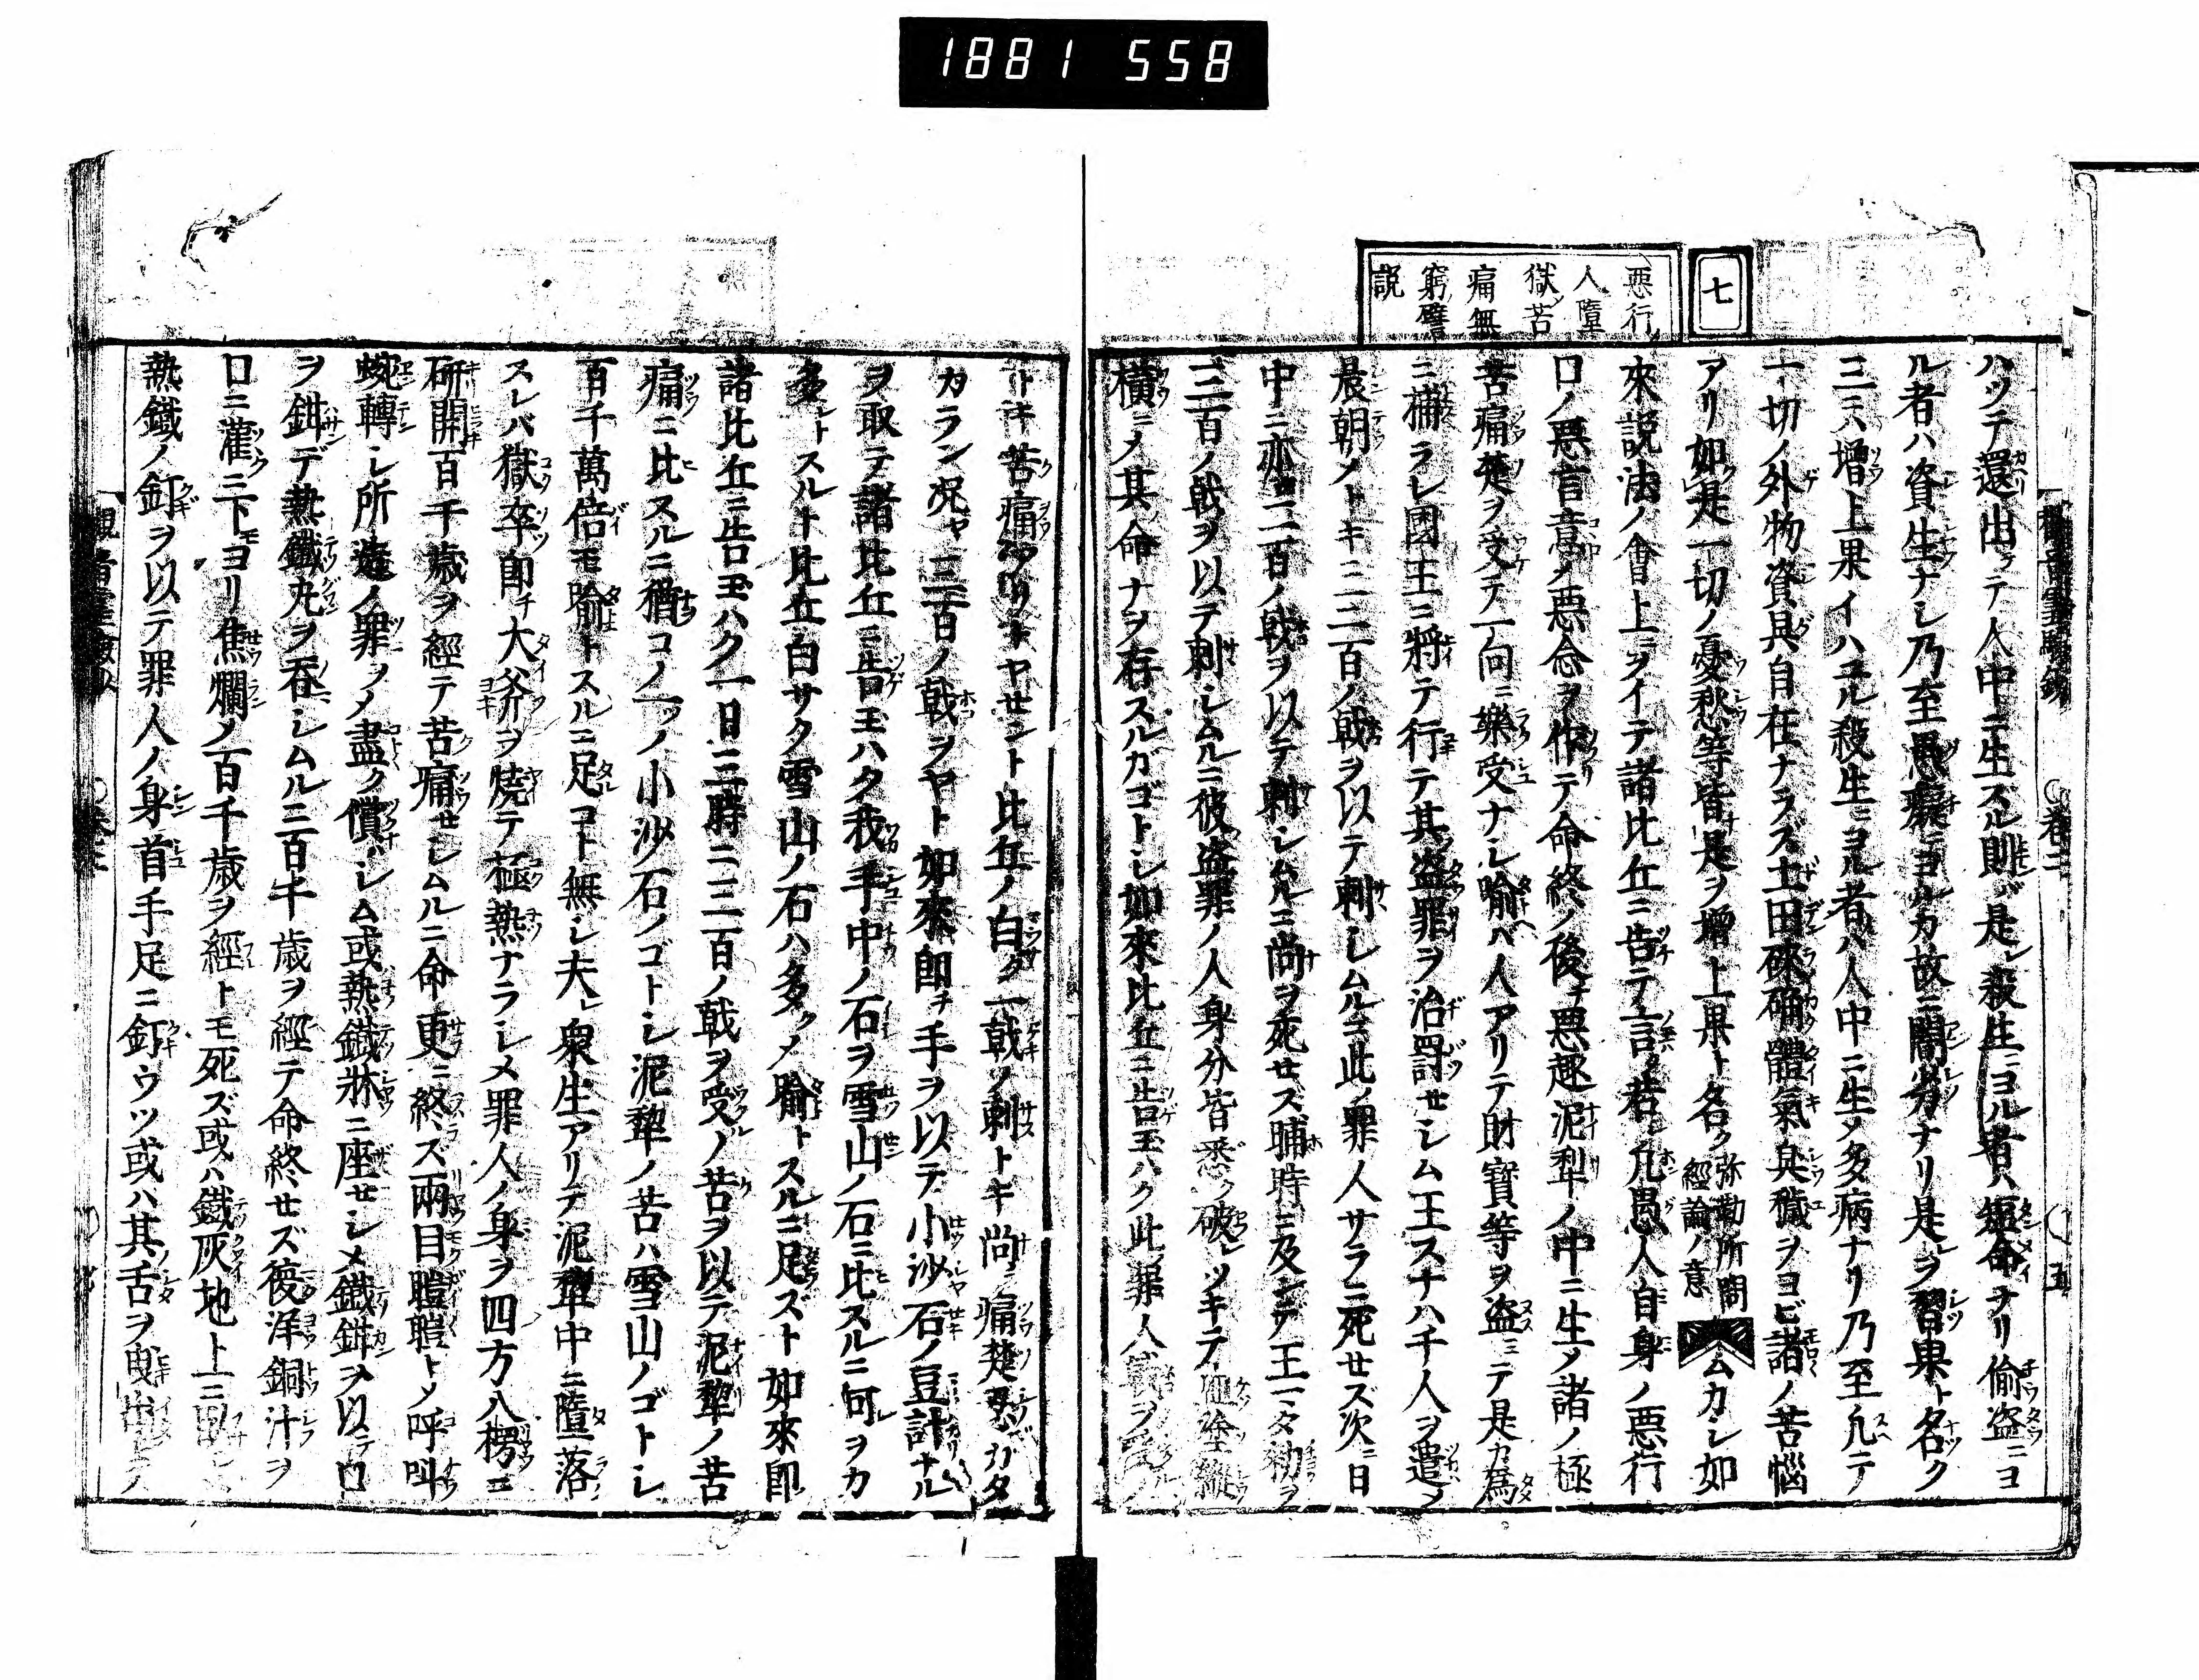 1881 558
七
悪行
人墮
獄苦
痛無
窮譬
説
ハツテ還出テ人中ニ生スル則ンバ是レ殺生ニヨル者ハ短命ナリ偸盗ニヨ
ル者ハ資生ナシ乃至愚癡ニヨルカ故ニ闇劣ナリ是レヲ習果ト名ク
三ニハ増上果イハユル殺生ニヨル者ハ人中ニ生メ多病ナリ乃至凡テ
一切ノ外物資具自在ナラズ土田磽确體氣臭穢ヲヨビ諸ノ苦惱
アリ如是一切ノ憂愁等皆是ヲ増上果ト名ク弥勒所問經論ノ意ムカシ如
來説法ノ會上ヲイテ諸比丘ニ告テ言ク若シ凡愚人自身ノ悪行
口ノ悪言意ノ悪念ヲ作テ命終ノ後チ悪趣泥犁ノ中ニ生メ諸ノ極
苦痛楚ヲ受テ一向ニ樂受ナシ喩ヘハ人アリテ財寳等ヲ盗ミテ是カ爲
ニ捕ラレ國王ニ將テ行テ其盗罪ヲ治罰セシム王スナハ千人ヲ遣メ
晨朝ノトキニ二百ノ戟ヲ以テ刺シムルニ此ノ罪人サラニ死セズ次ニ日
中ニ亦ニ二百ノ戟ヲ以テ刺シムルニ尚ヲ死セス晡時ニ及テ王マタ勅メ
三百ノ戟ヲ以テ刺シムルニ彼盗罪ノ人身分皆悉ク破レツキテ
横ニメ其命ナヲ存スルカゴトシ如來比丘ニ告玉ハク此ノ罪人
トキ苦痛タリトヤセント比丘ノ白ク一戟ノ刺トキ尚ヲ痛楚忍ガタ
カラン况ヤ三百ノ戟ヲヤト如來即チ手ヲ以テ小沙石ノ豆計ナル
ヲ取テ諸比丘ニ告玉ハク我手中ノ石ヲ雪山ノ石ニ比スルニ何レヲカ
多トスルナ比丘白サク雪山ノ石ハ多クメ喩トスルニ足ズト如來即
諸比丘ニ告玉ハク一日三時ニ三百ノ戟ヲ受ルノ苦ヲ以テ泥犁ノ苦
痛ニ比スルニ猶コノ一ツノ小沙石ノゴトシ泥犁ノ苦ハ雪山ノゴトシ
百千萬倍モ喩トスルニ足コト無シ夫レ衆生アリテ泥犁中ニ墮落
スレバ獄卒即チ大斧ヲ燒テ極熱ナラシメ罪人ノ身ヲ四方八楞ニ
斫開百千歳ヲ經テ苦痛セシムルニ命更ニ終ス兩目瞪瞪トメ呼叫
蜿轉シ所造ノ罪ヲメ盡ク償ハシム或熱鐵牀ニ座セシメ鐵鉗ヲ以テ口
ヲ鉗デ熱鐵丸ヲ呑シムル三百千歳ヲ經テ命終セズ復洋銅汁ヲ
口ニ灌ニ下モヨリ焦爛ノ百千歳ヲ經トモ死ズ或ハ鐵灰地上ニ
熱鐵ノ釘ヲ以テ罪人ノ身首手足ニ釘ウツ或ハ其ノ舌ヲ